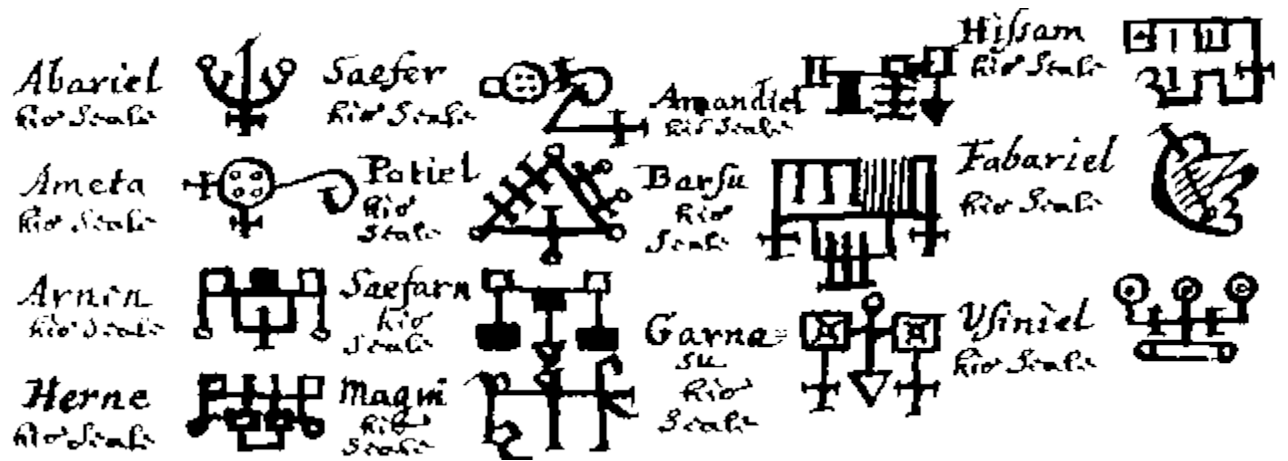 Abariel
his Seale
Ameta
his Seale
Arnen
his Seale
Herne
his Seale
Saefer
his Seale
Potiel
his
Seale
Saefarn
his
Seale
Magni
his
Seale
Amandiel
his Seale
Barsu
his
Seale
Garna=
su
his
Seale
Hissam
his Seale
Fabariel
his Seale
Usiniel
his Seale